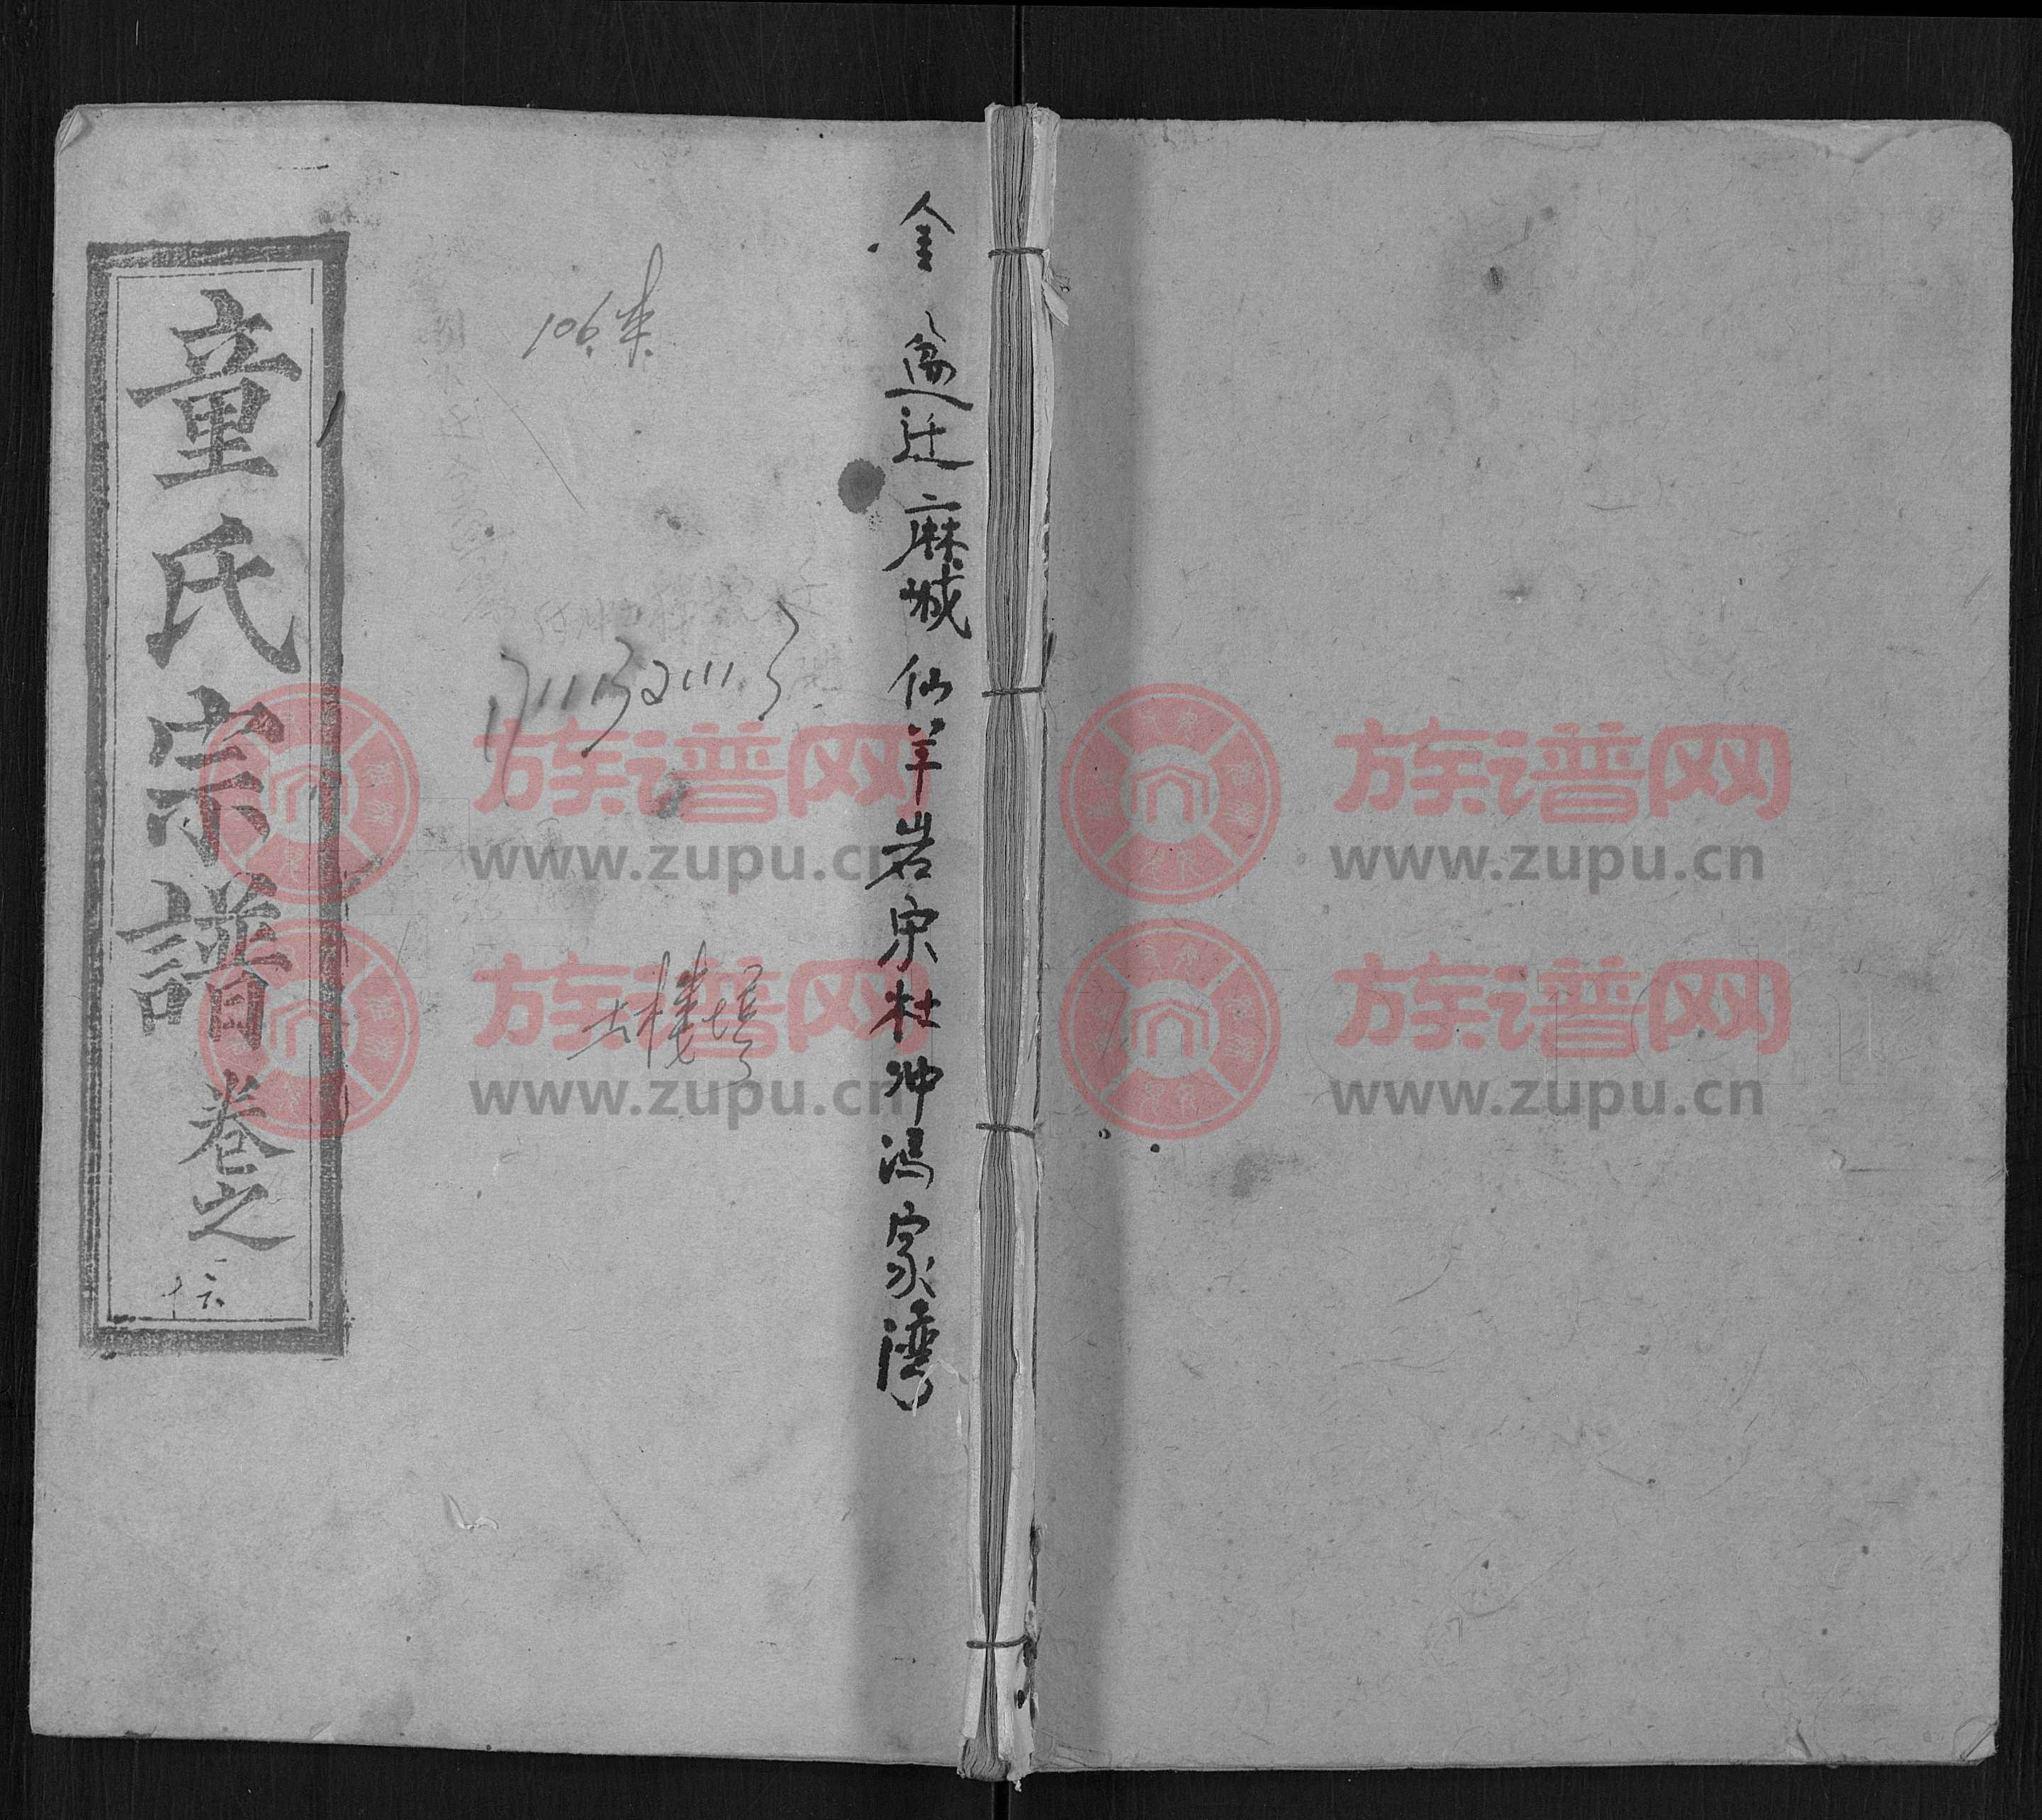 金盆迁麻城仙羊岩宋杜冲冯家湾
106.来
土楼塆
童氏宗譜卷之
十六
族谱网
www.zupu.cn
族谱网
www.zupu.cn
族谱网
www.zupu.cn
族谱网
www.zupu.cn